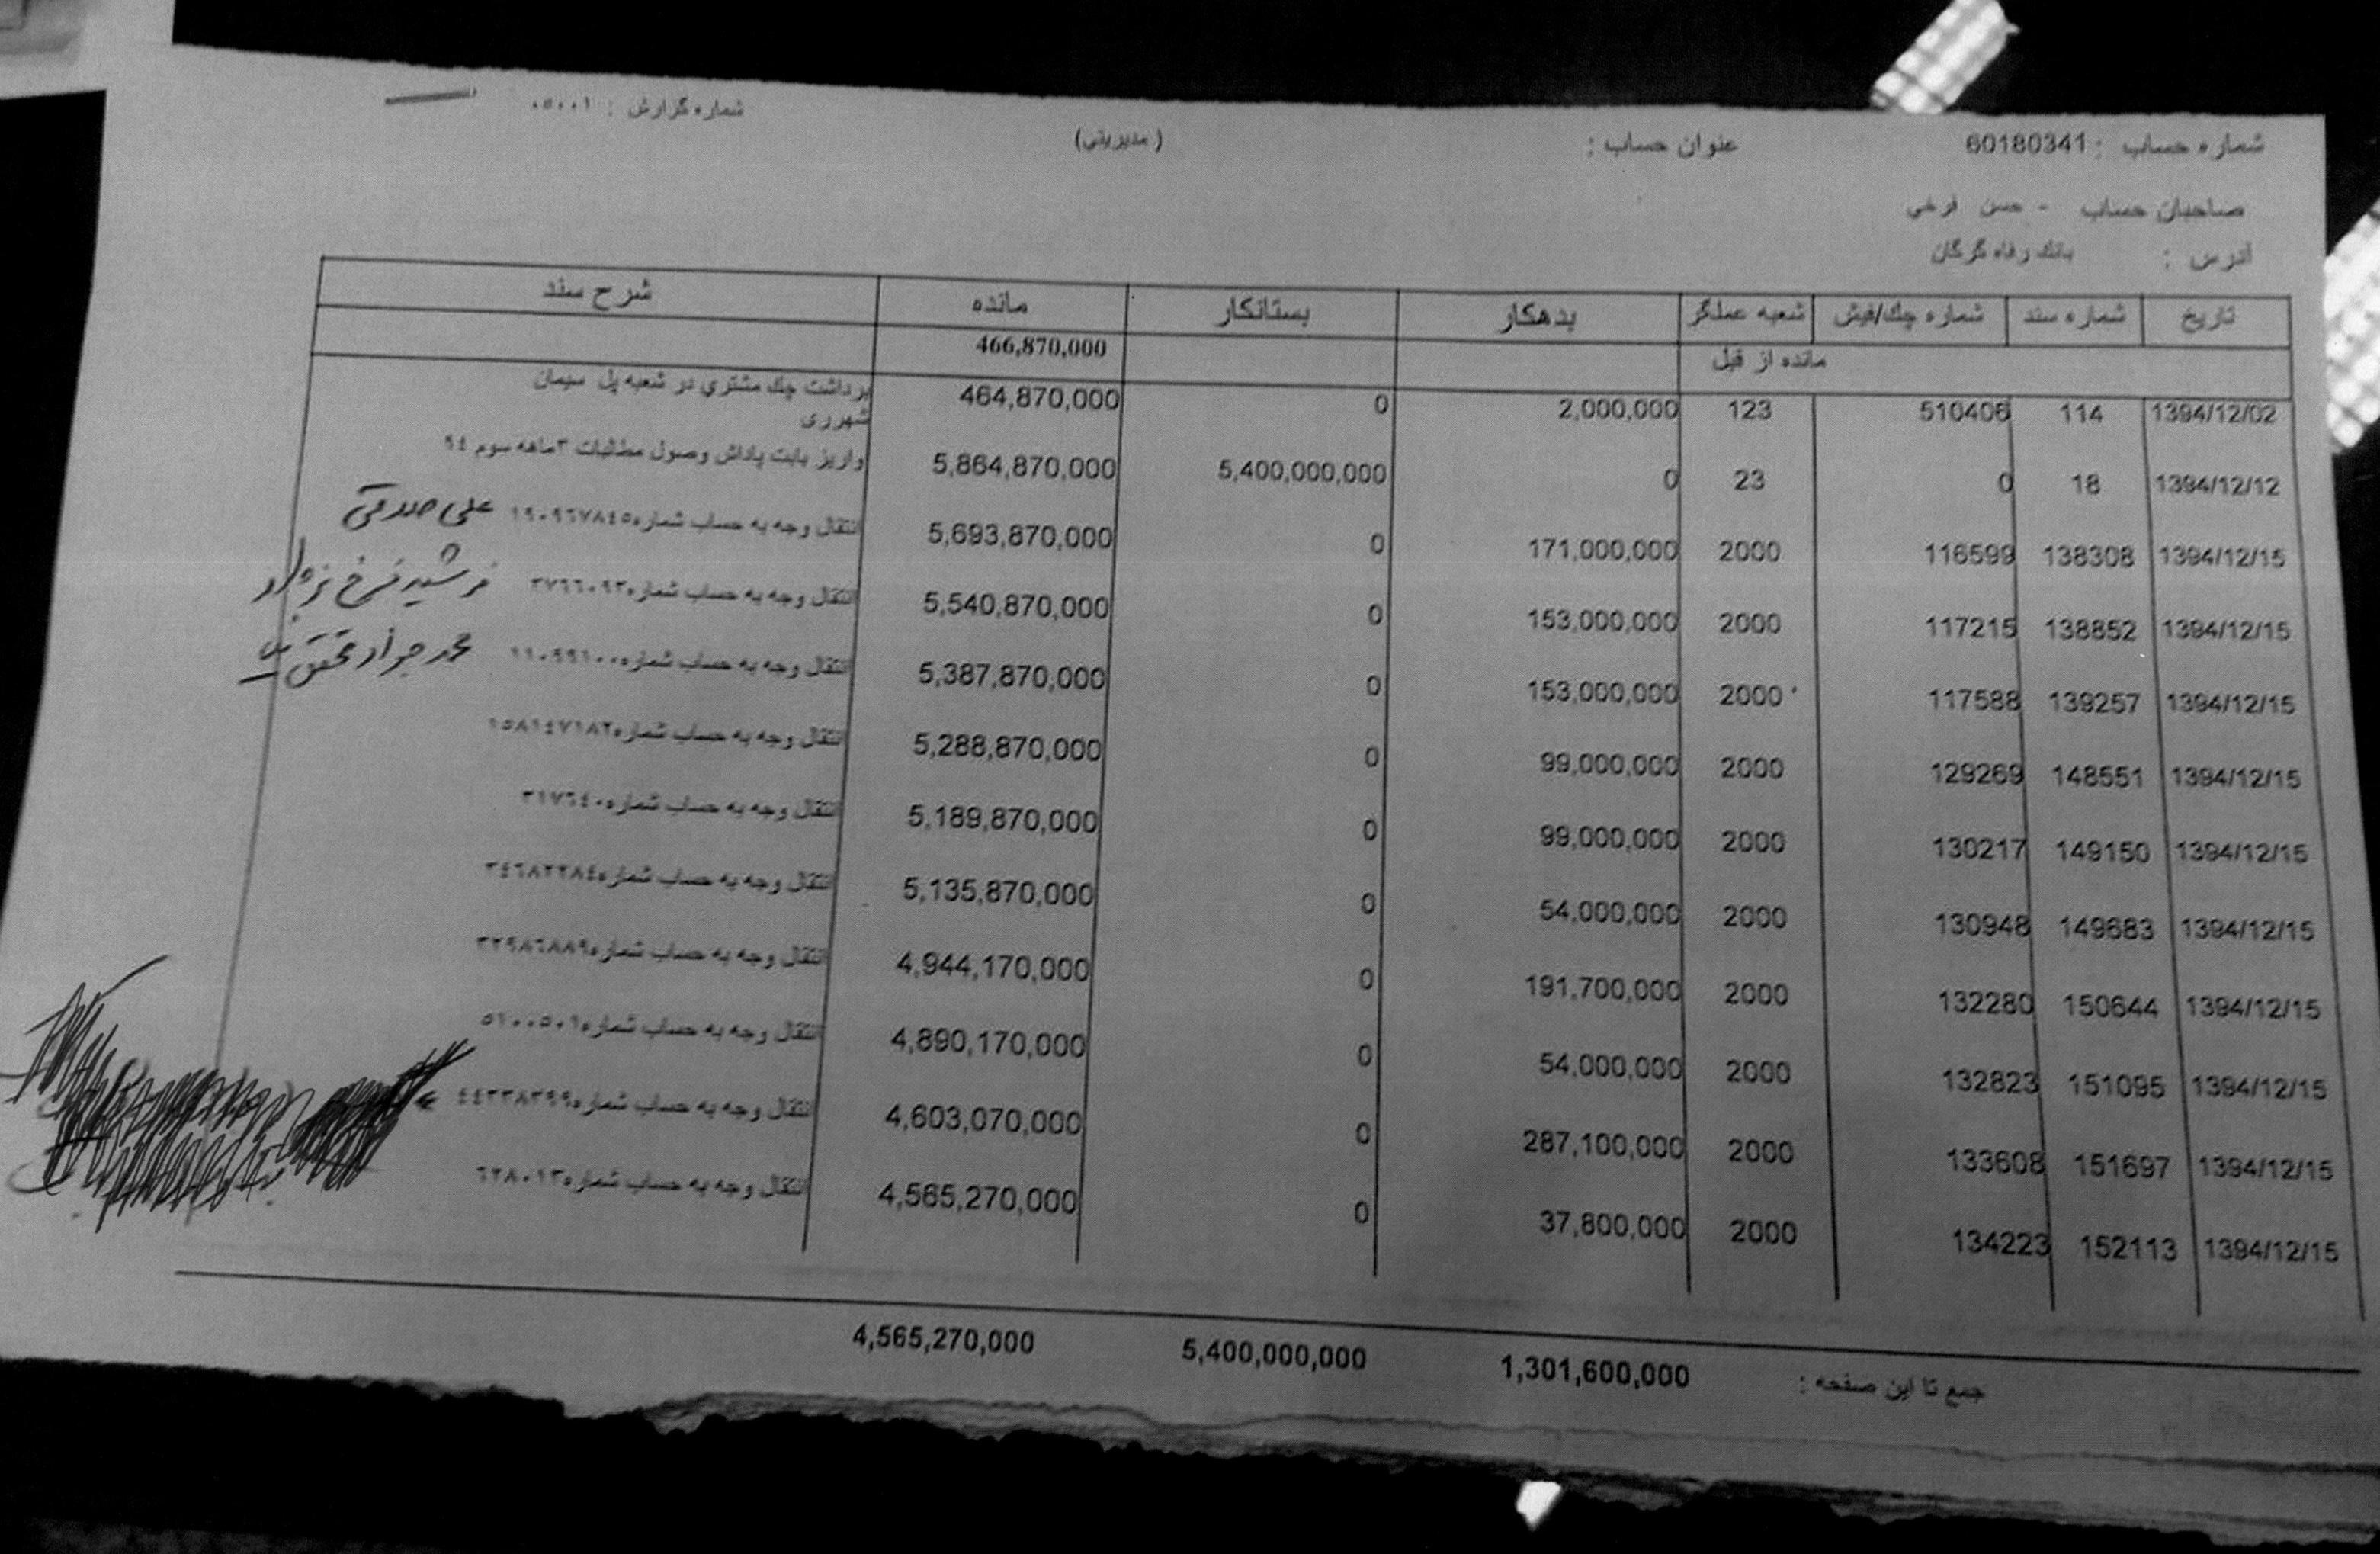 شماره حساب : 60180341 عنوان حساب : (مدیریتی) شماره گزارش : ۰۵۰۰۱
صاحبان حساب - حسن فرخی
آدرس : بانک رفاه گرگان
تاریخ شماره سند شماره چك/فیش شعبه عملگر بدهکار بستانکار مانده شرح سند
مانده از قبل 466,870,000
1394/12/02 114 510406 123 2,000,000 0 464,870,000 برداشت چك مشتري در شعبه پل سیمان
شهرری
1394/12/12 18 0 23 0 5,400,000,000 5,864,870,000 واریز بابت پاداش وصول مطالبات ۳ماهه سوم ۹٤
1394/12/15 138308 116599 2000 171,000,000 0 5,693,870,000 انتقال وجه به حساب شماره۱۹۰۹٦۷۸٤٥ علی صدقی
1394/12/15 138852 117215 2000 153,000,000 0 5,540,870,000 انتقال وجه به حساب شماره۳۷٦٦۰۹۳ فرشید فرخ نژاد
1394/12/15 139257 117588 2000 153,000,000 0 5,387,870,000 انتقال وجه به حساب شماره۱۱۰۹۹۱۰۰ محمد جواد محقق نیا
1394/12/15 148551 129269 2000 99,000,000 0 5,288,870,000 انتقال وجه به حساب شماره۱٥۸۱٤۷۱۸۲
1394/12/15 149150 130217 2000 99,000,000 0 5,189,870,000 انتقال وجه به حساب شماره۳۱۷٦٤۰
1394/12/15 149683 130948 2000 54,000,000 0 5,135,870,000 انتقال وجه به حساب شماره
1394/12/15 150644 132280 2000 191,700,000 0 4,944,170,000 انتقال وجه به حساب شماره
1394/12/15 151095 132823 2000 54,000,000 0 4,890,170,000 انتقال وجه به حساب شماره
1394/12/15 151697 133608 2000 287,100,000 0 4,603,070,000 انتقال وجه به حساب شماره
1394/12/15 152113 134223 2000 37,800,000 0 4,565,270,000 انتقال وجه به حساب شماره
جمع تا این صفحه : 1,301,600,000 5,400,000,000 4,565,270,000